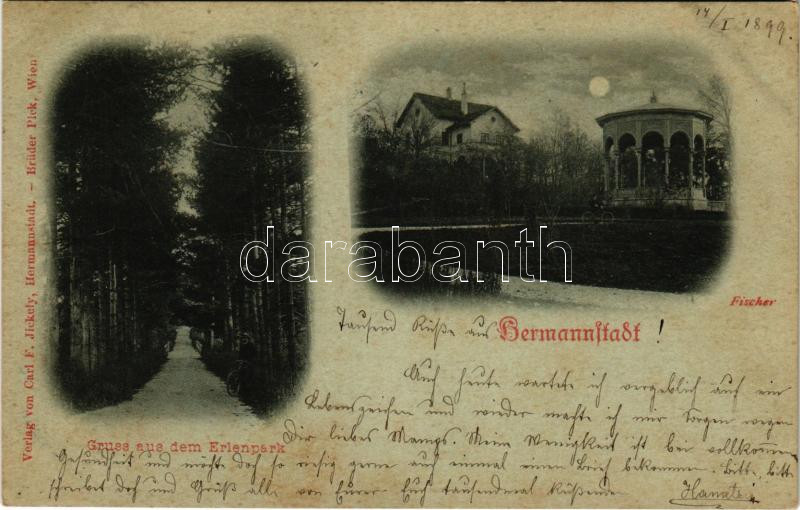 14/I 1899.
Verlag von Carl F. Jickely, Hermannstadt. – Brüder Pick, Wien
darabanth
Fischer
Tausend Küße aus Hermannstadt!
Auch heute wartete ich vergeblich auf ein
Lebenszeichen und wieder machte ich mir Sorgen wegen
Dir liebes Mamps. Meine Wenigkeit ist bei vollkommen
Gruss aus dem Erlenpark
Gesundheit und möchte doch so riesig gerne auf einmal einen Brief bekommen. Bitte, bitte
schreibet doch und Grüß alle von Eurer Euch tausendmal küßenden